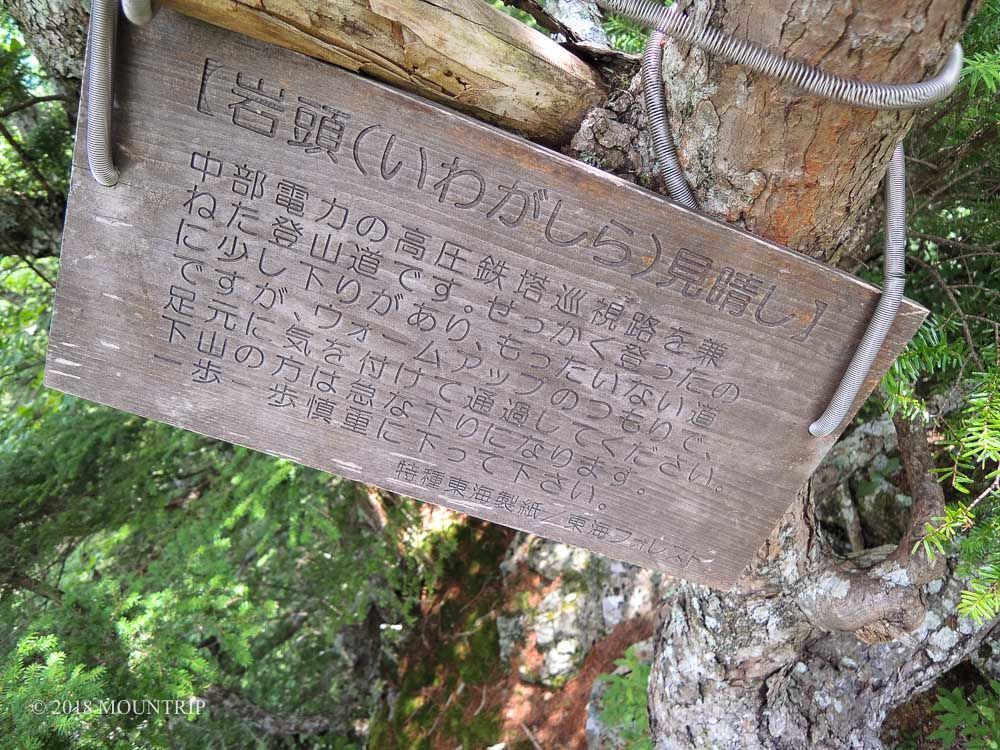 【岩頭(いわがしら)見晴し】
中部電力の高圧鉄塔巡視路を兼
ねた登山道です。せっかく登ったの
に少し下りがあり、もったいない道
ですが、ウォームアップのつもりで、
足元に気を付けて通過してください。
下山の方は急な下りになります。
一歩一歩慎重に下って下さい。
特種東海製紙/東海フォレスト
© 2018 MOUNTRIP